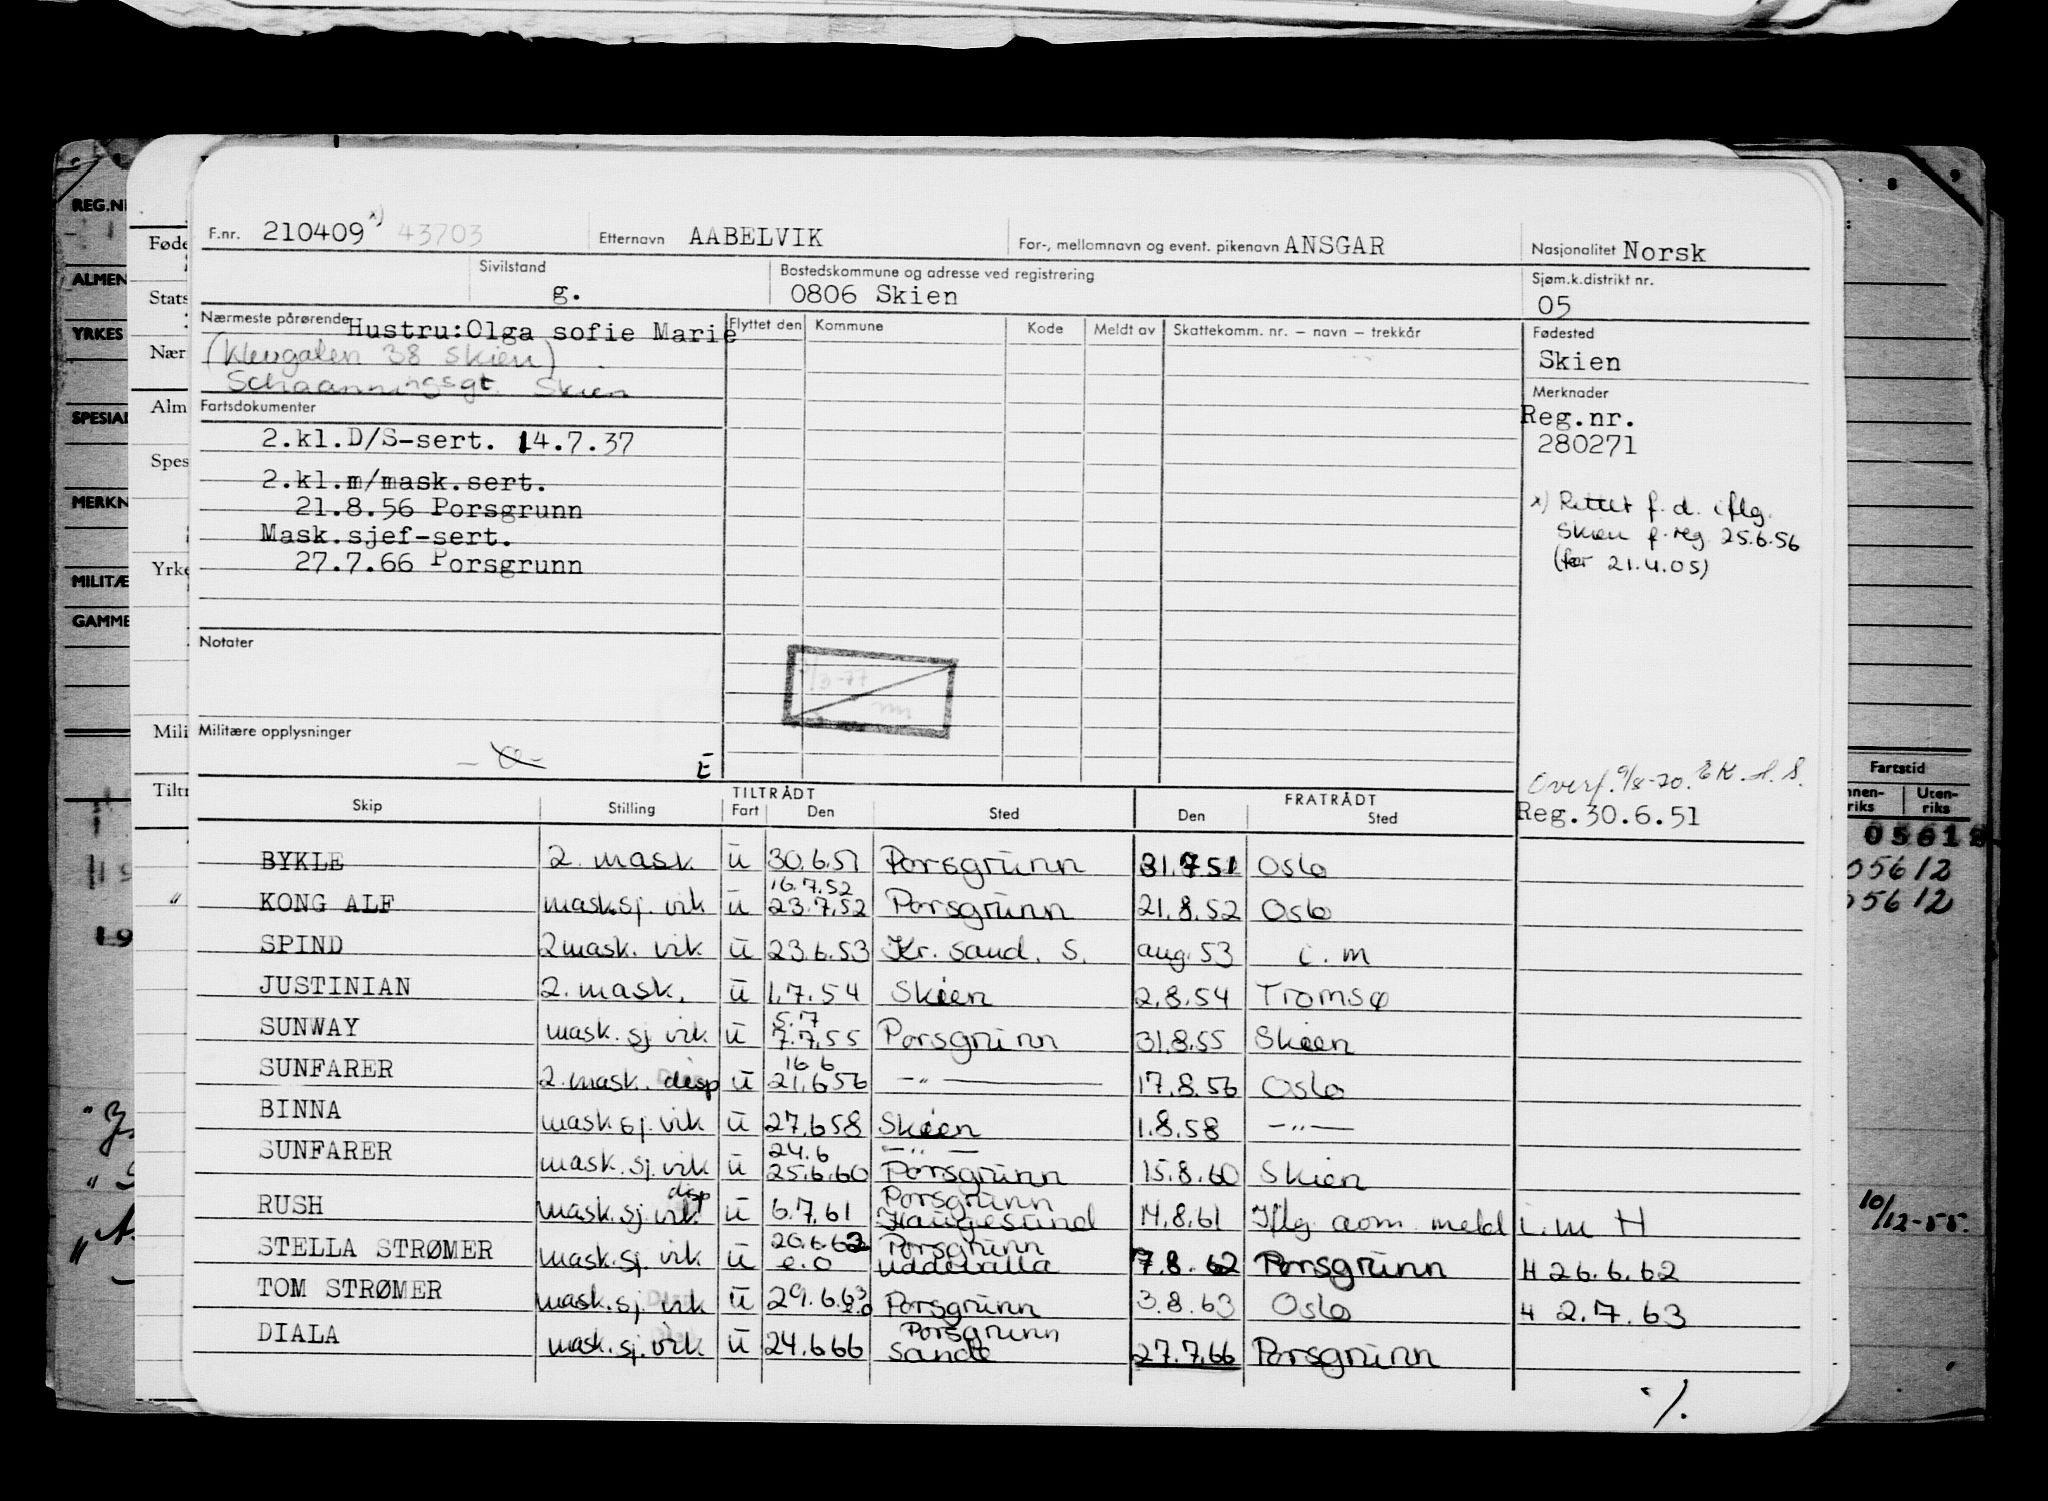 F.nr. 210409 x) 43703 Etternavn AABELVIK For-, mellomnavn og event. pikenavn ANSGAR Nasjonalitet Norsk
Sivilstand g. Bostedskommune og adresse ved registrering 0806 Skien Sjøm.k.distrikt nr. 05
Nærmeste pårørende Hustru:Olga sofie Marie
38 Skien)
Schaanningsgt. Skien
Flyttet den Kommune Kode Meldt av Skattekomm. nr. – navn – trekkår
Fødested
Skien
Merknader
Reg.nr.
280271
x) Rettet f. d. iflg.
Skien f.reg. 25.6.56
(før 21.4.05)
Fartsdokumenter
2.kl.D/S-sert. 14.7.37
2.kl.m/mask.sert.
21.8.56 Porsgrunn
Mask.sjef-sert.
27.7.66 Porsgrunn
Notater
/3-77
Militære opplysninger
Overf. 9/8-70.
Reg.30.6.51
TILTRÅDT FRATRÅDT
Skip Stilling Fart Den Sted Den Sted
BYKLE 2. mask u 30.6.51 Porsgrunn 31.7.51 Oslo
KONG ALF mask.sj. vik u 16.7.52 23.7.52 Porsgrunn 21.8.52 Oslo
SPIND 2 mask. vik u 23.6.53 Kr. sand. S. aug. 53 i. m
JUSTINIAN 2. mask. u 1.7.54 Skien 2.8.54 Tromsø
SUNWAY mask. sj vik u 5.7 7.7.55 Porsgrunn 31.8.55 Skien
SUNFARER 2. mask. disp u 16 6 21.6 56 –"– 17.8.56 Oslo
BINNA mask sj. vik u 27.6 58 Skien 1.8.58 –"–
SUNFARER mask. sj. vik u 24.6 –"– 25.6.60 Porsgrunn 15.8.60 Skien
RUSH mask. sj. vik disp u 6.7.61 Porsgrunn Haugesund 14.8.61 Iflg. aom. meld i. m H
STELLA STRØMER mask. sj. vik u 20.6.62 e.o Porsgrunn Uddevalla 7.8.62 Porsgrunn H 26.6.62
TOM STRØMER mask. sj. vik u 29.6.63 e.o Porsgrunn 3.8.63 Oslo H 2.7.63
DIALA mask. sj. vik u 24.6 66 Porsgrunn Sande 27.7.66 Porsgrunn
·/.
REG.N
ALMEN
YRKES
SPESIAL
MERKN
MILITÆ
GAMME
Føde
Stats
Nær
Alm
Spes
Yrke
Mili
Tiltr
Fartstid
Uten-
riks
05612
05612
10/12-55.